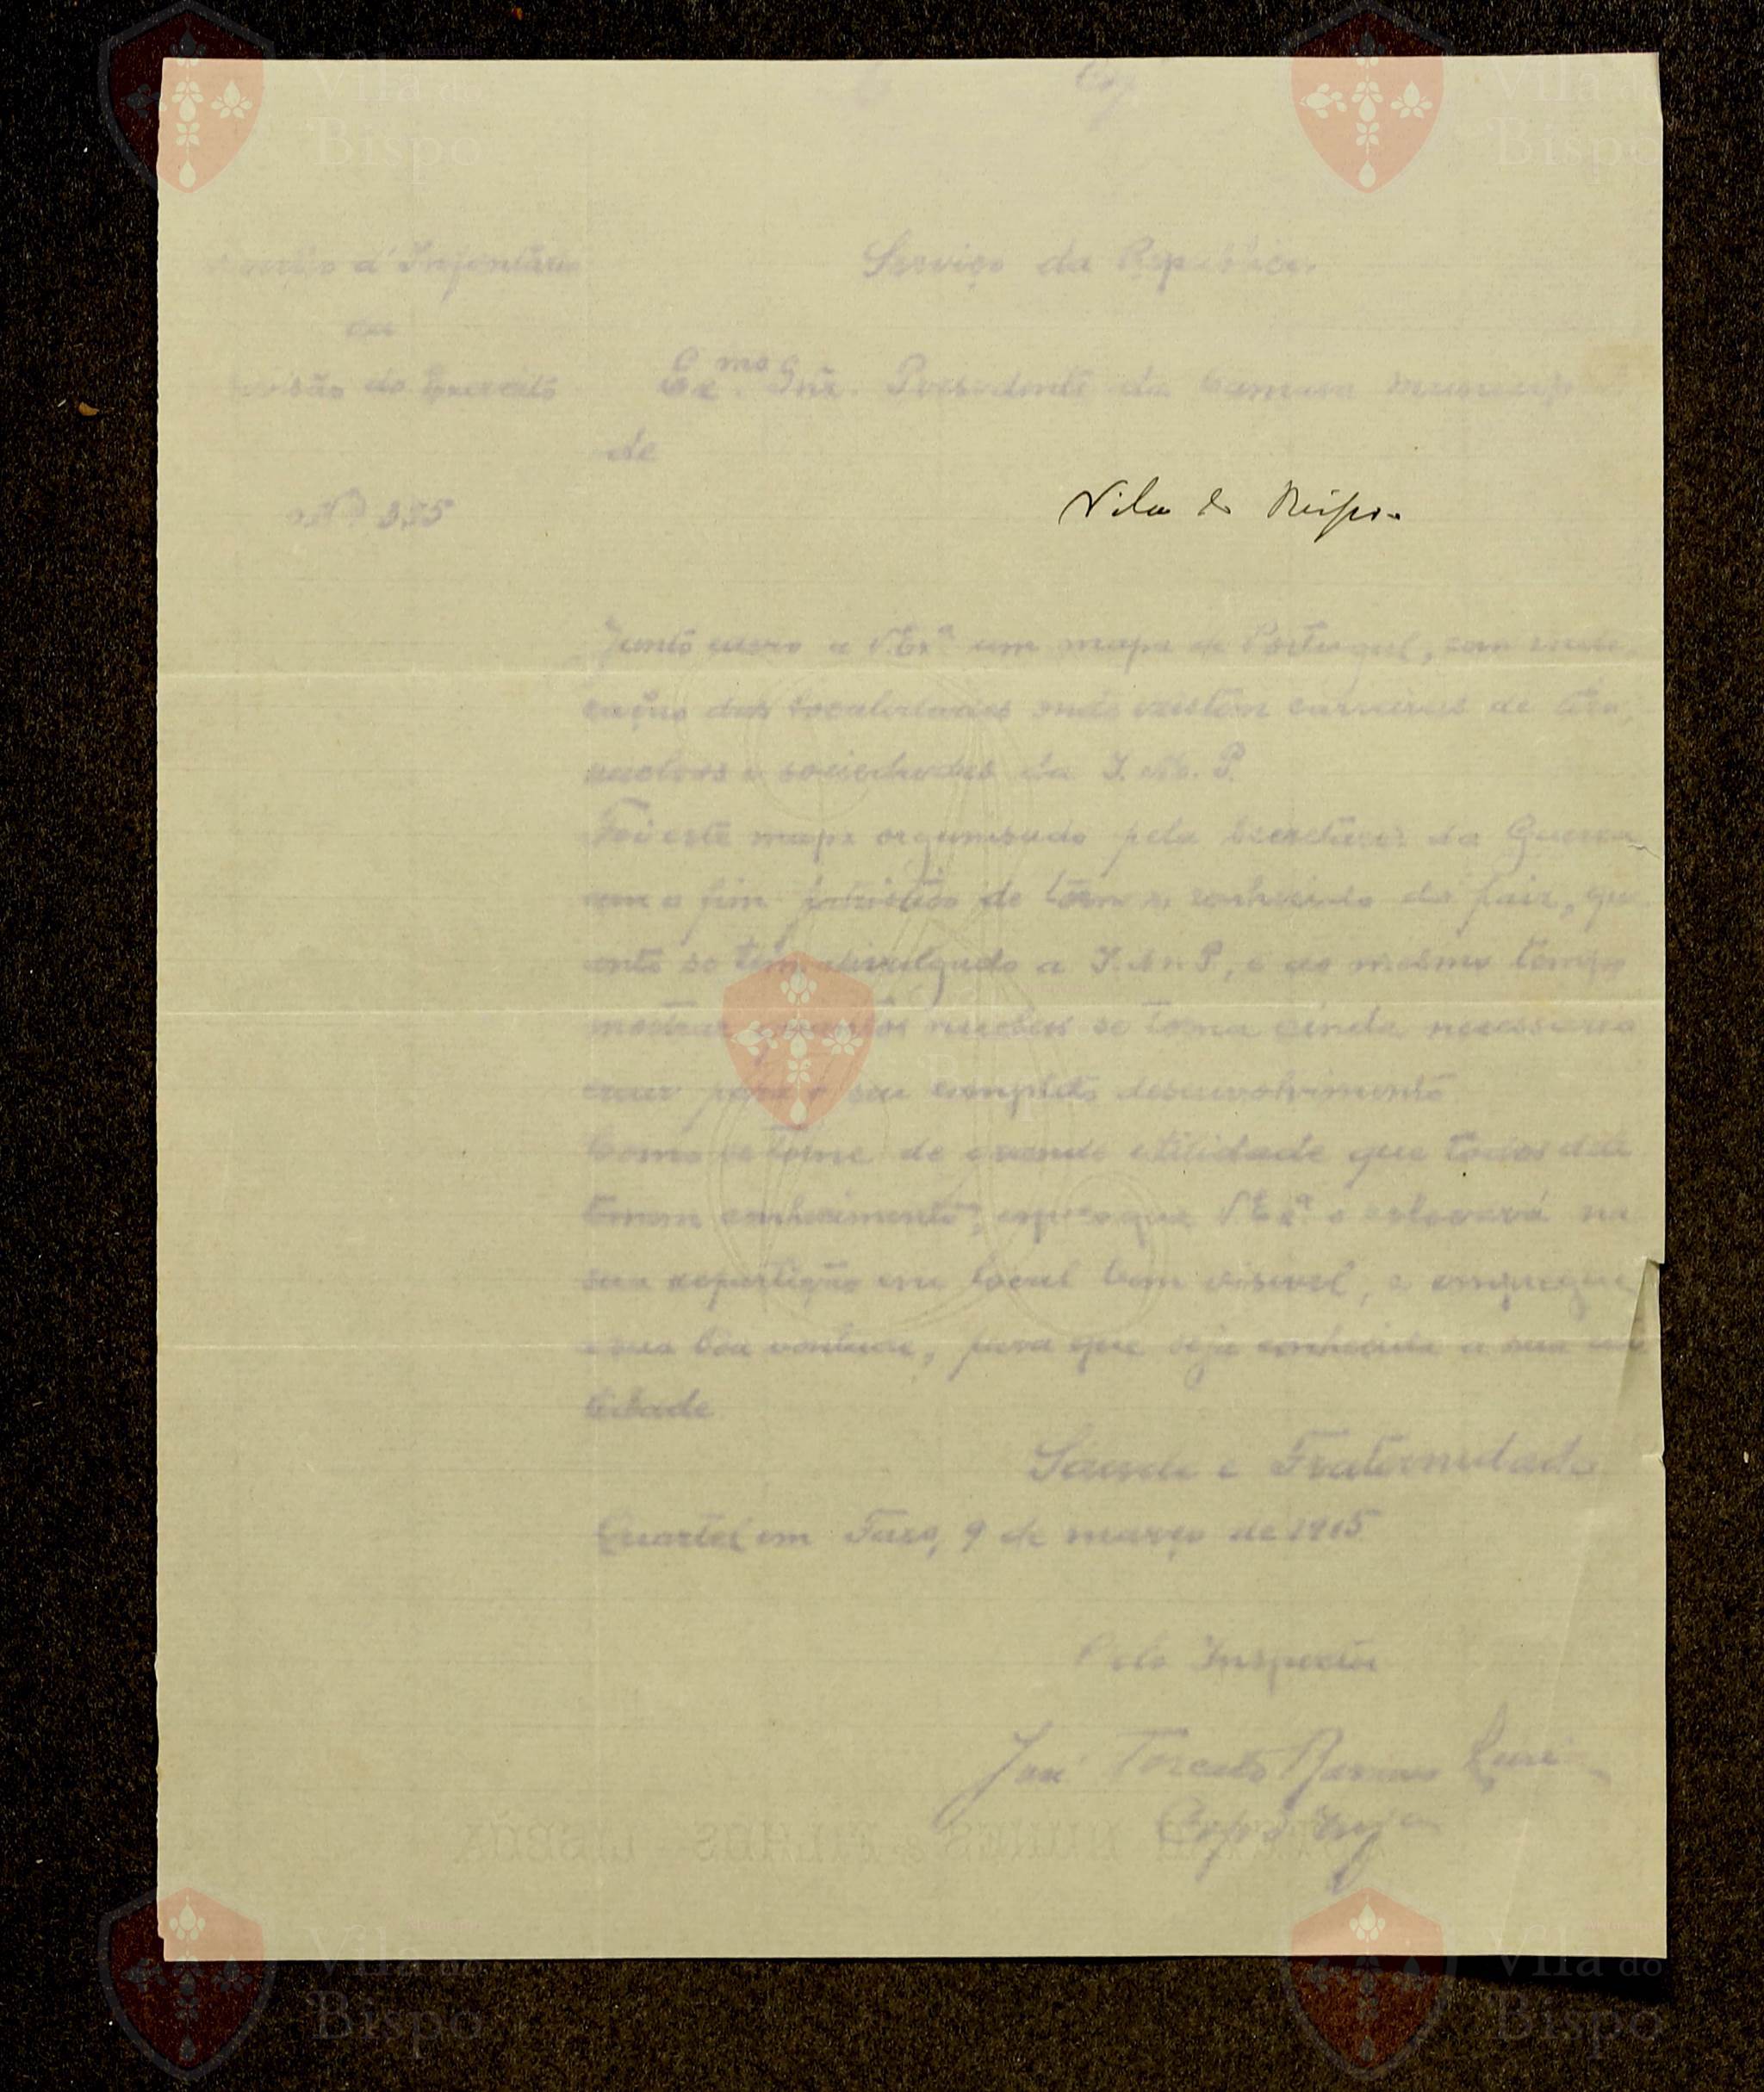 Serviço da Republica
d' Infantaria
da
Divisão do Exercito
Exmo Snr. Presidente da Camara Municipal
de
Vila do Bispo.
Nº 335
Junto envio a V. Exª um mapa de Portugal, com indi-
cação das localidades onde existem carreiras de tiro,
nucleos e sociedades da I. M. P.
Foi este mapa organisado pela Secretaria da Guerra
com o fim patriotico de tornar conhecido do paiz, qu-
anto se tem divulgado a I. M. P., e ao mesmo tempo
mostrar quantos nucleos se torna ainda necessario
crear para o seu completo desenvolvimento
Como se torne de grande utilidade que todos dele
tomem conhecimento, espero que V. Exª o colocará na
sua repartição em local bem visivel, e empregue
a sua boa vontade, para que seja conhecida a sua uti-
lidade
Saude e Fraternidade
Quartel em Faro, 9 de março de 1915
Pelo Inspector
José Torcato Ramos
Cap. d'Infª
NUNES & FILHOS LISBOA
Vila do
Bispo
Vila do
Bispo
Vila do
Bispo
Vila do
Bispo